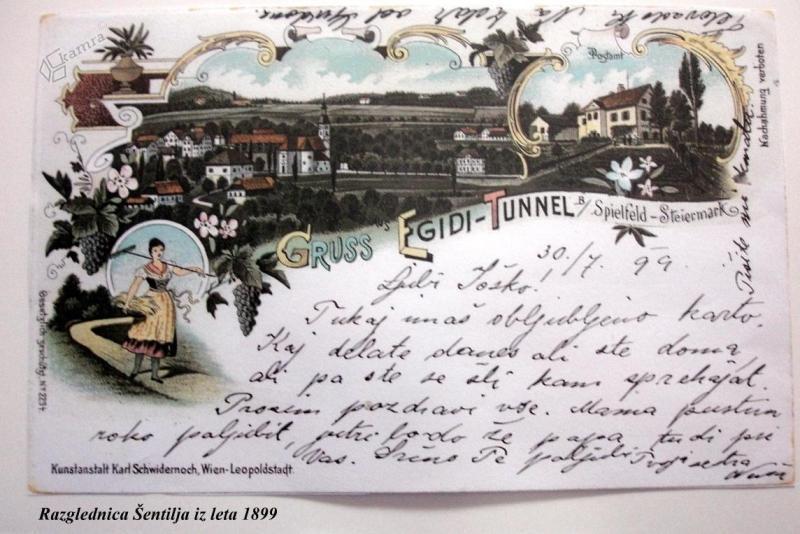 kamra
Na
od
Postamt
Nachahmung verboten
GRUSS AUS EGIDI-TUNNEL B/ Spielfeld-Steiermark
Pišite mi kmalu!
30./7. 99.
Ljubi Joško!
Tukaj imaš obljubljeno karto.
Kaj delate danes ali ste doma,
ali pa ste se šli kam sprehajat.
Prosim pozdravi vse. Mama pustim
roko poljubit, jutri bodo že papa tudi pri
Vas. Srčno Te poljubi Tvoja sestra
Gesetzlich geschützt Nº
Kunstanstalt Karl Schwidernoch, Wien-Leopoldstadt.
Razglednica Šentilja iz leta 1899